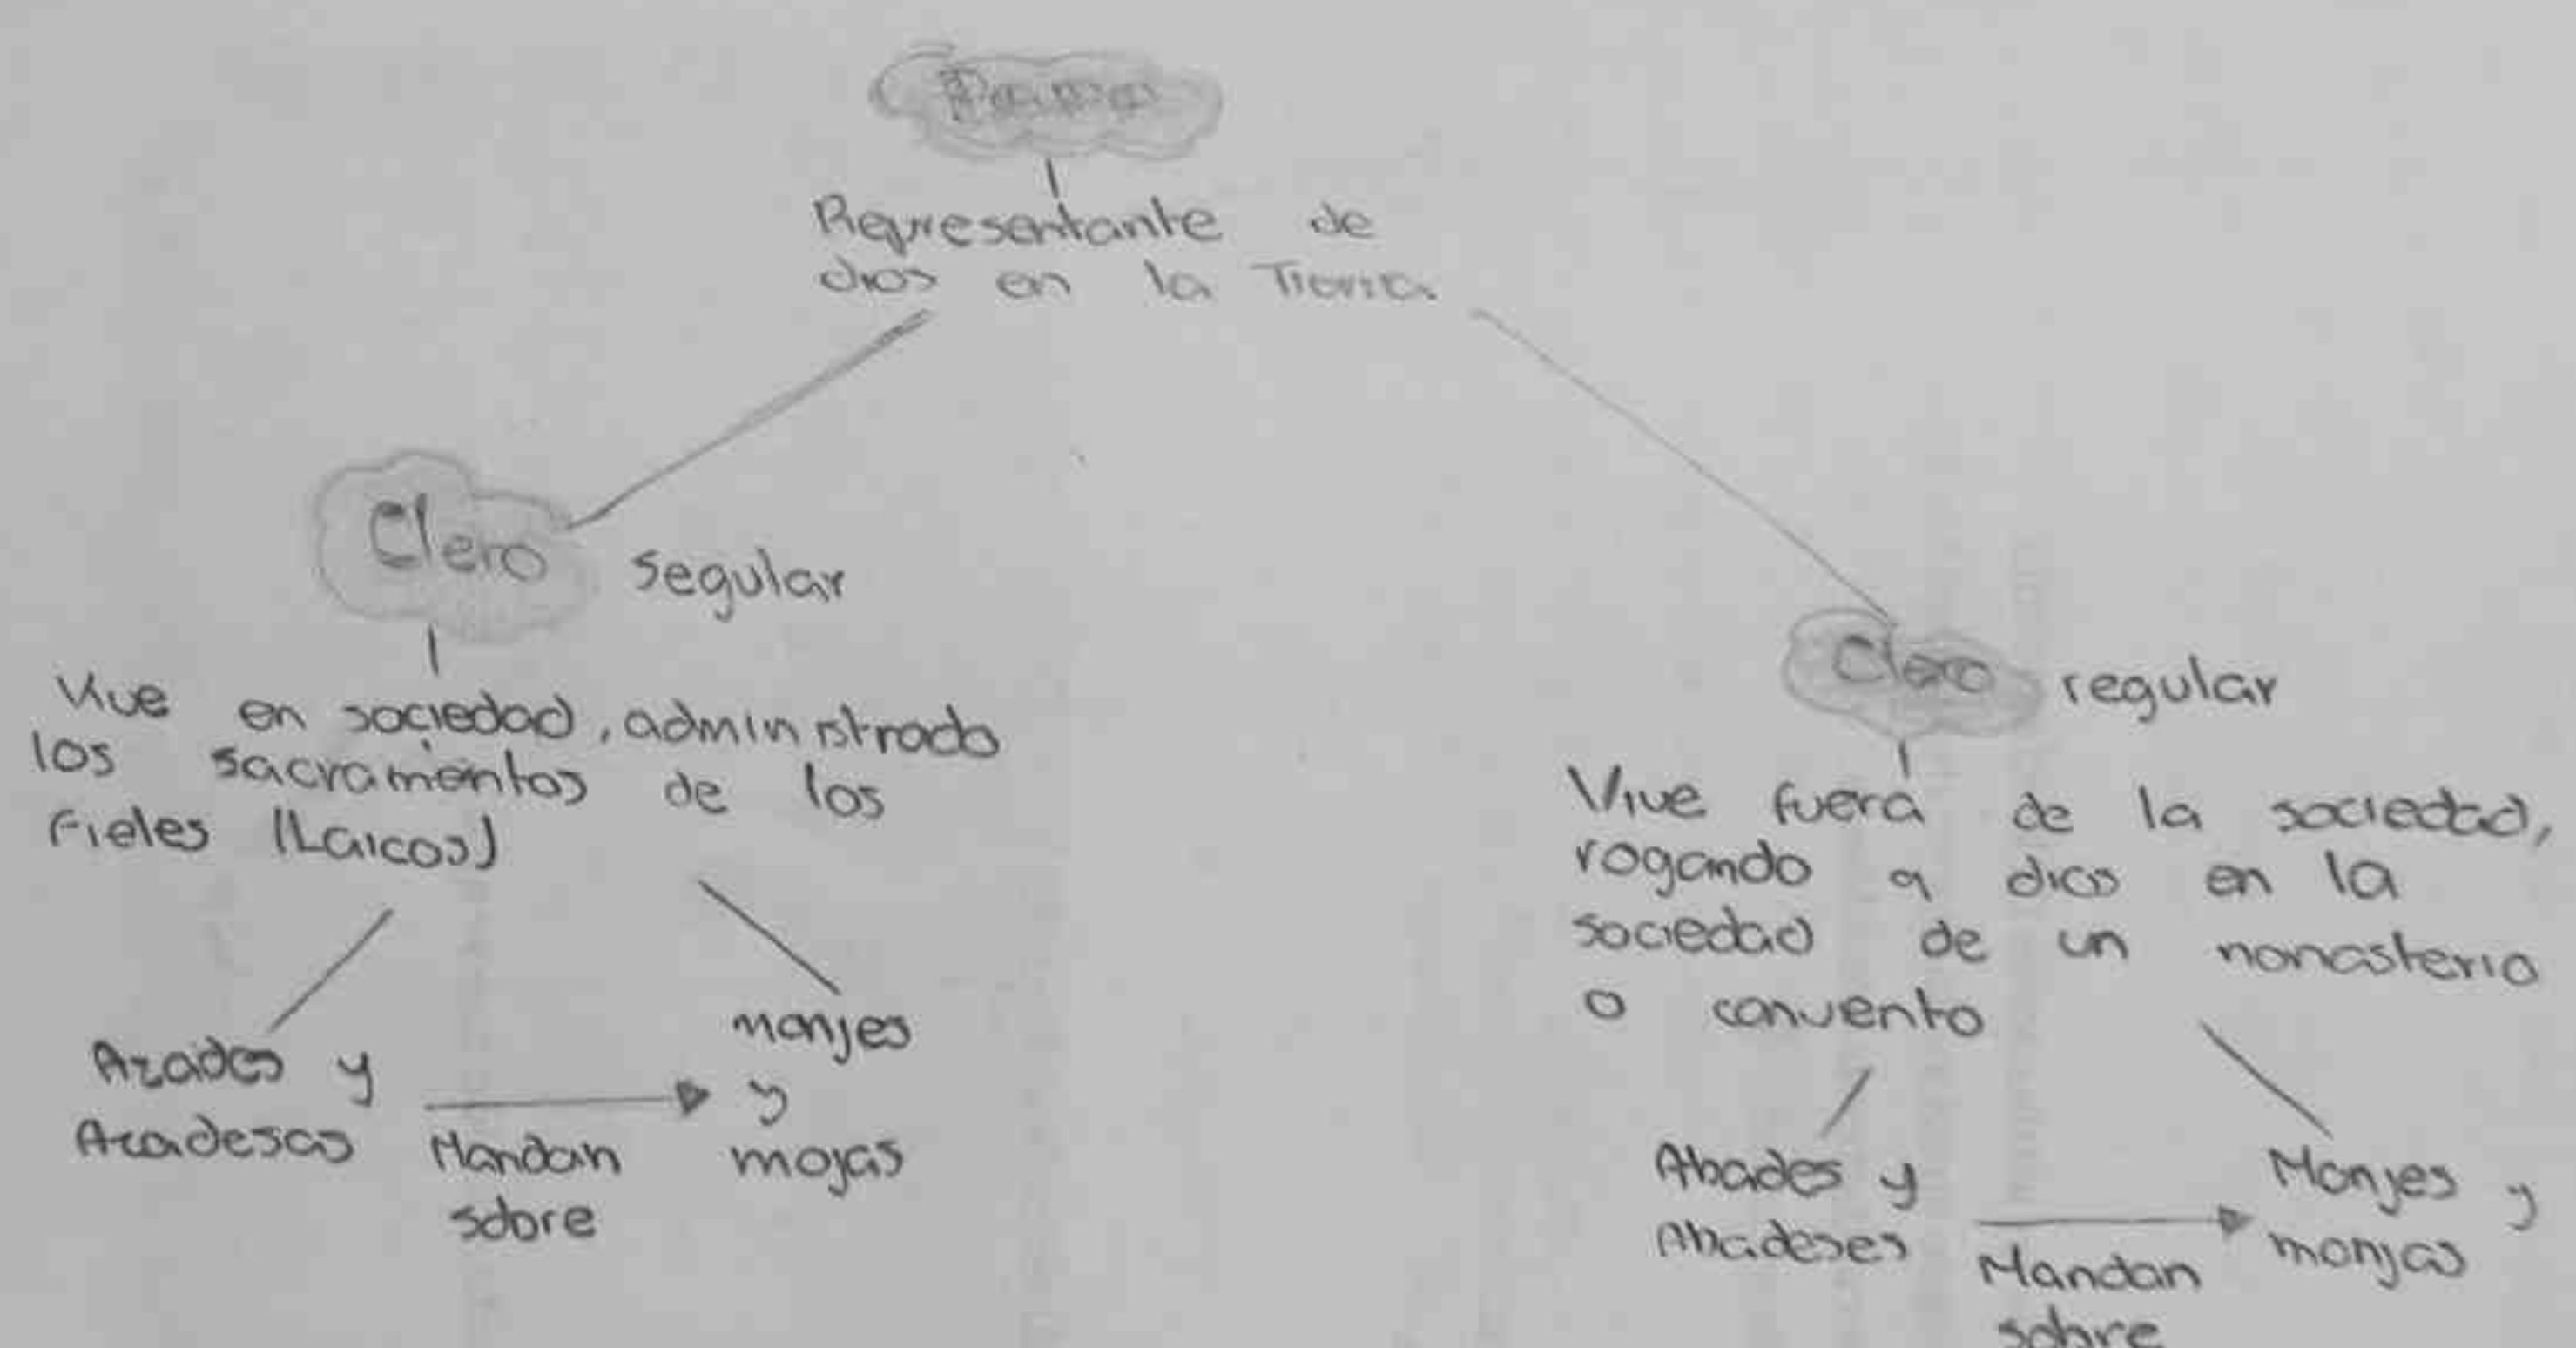 Papa
Representante de
dios en la Tierra
Clero segular
Vive en sociedad, administrado
los sacramientos de los
Fieles (Laicos)
Azades y
Azadesas
Mandan
sobre
monjes
y
mojas
Clero regular
Vive fuera de la sociedad,
rogando a dios en la
sociedad de un monasterio
o convento
Abades y
Abadeses
Mandan
sobre
Monjes y
monjas